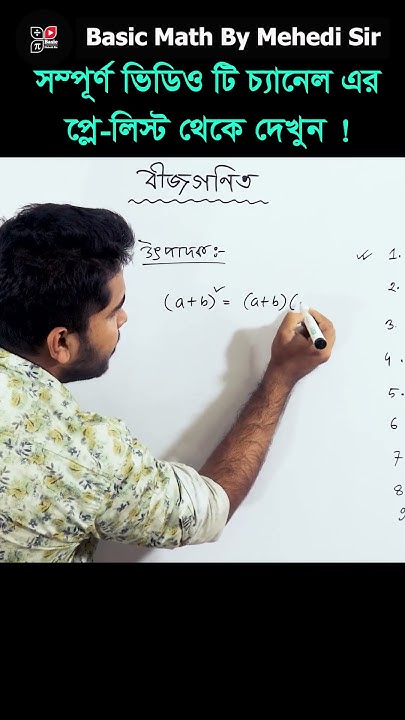 Basic Math By Mehedi Sir
সম্পূর্ণ ভিডিও টি চ্যানেল এর
প্লে-লিস্ট থেকে দেখুন !
বীজগণিত
উৎপাদক:-
(a+b)² = (a+b)(
1.
2.
3.
4.
5.
6
7
8
9